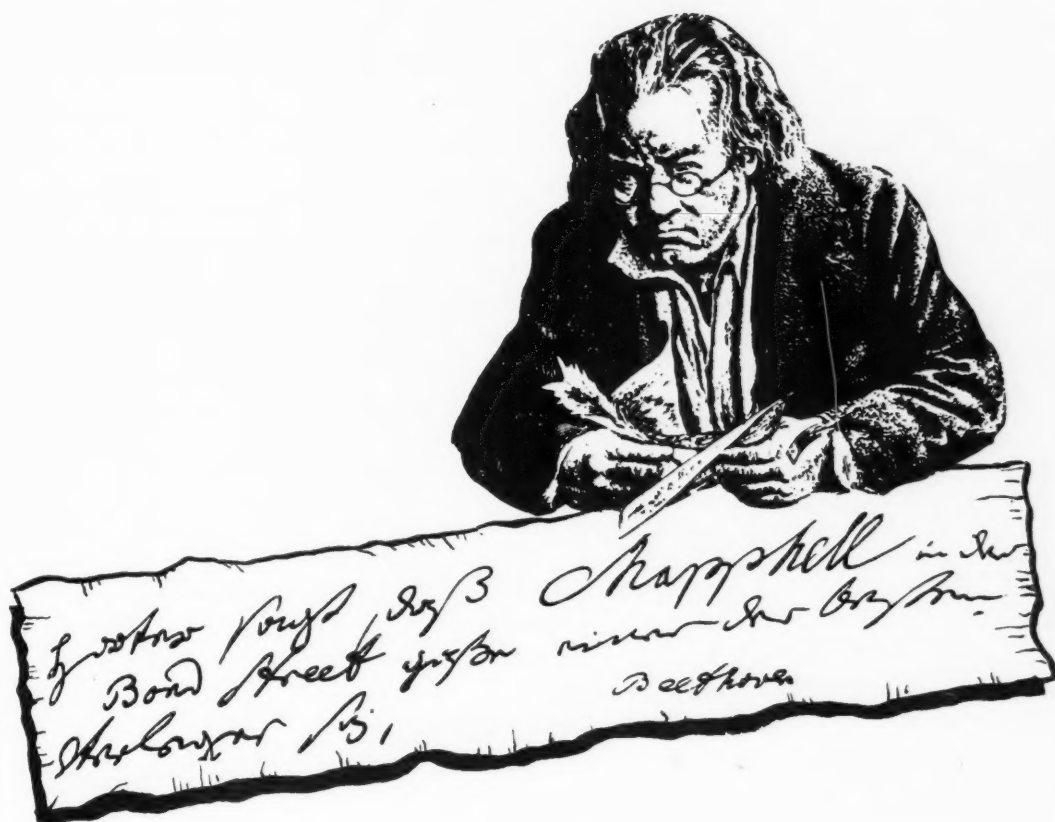 Potter sagt, daß Chapphell in der
Bond Street jetzt einer der besten
Verleger sey, Beethoven